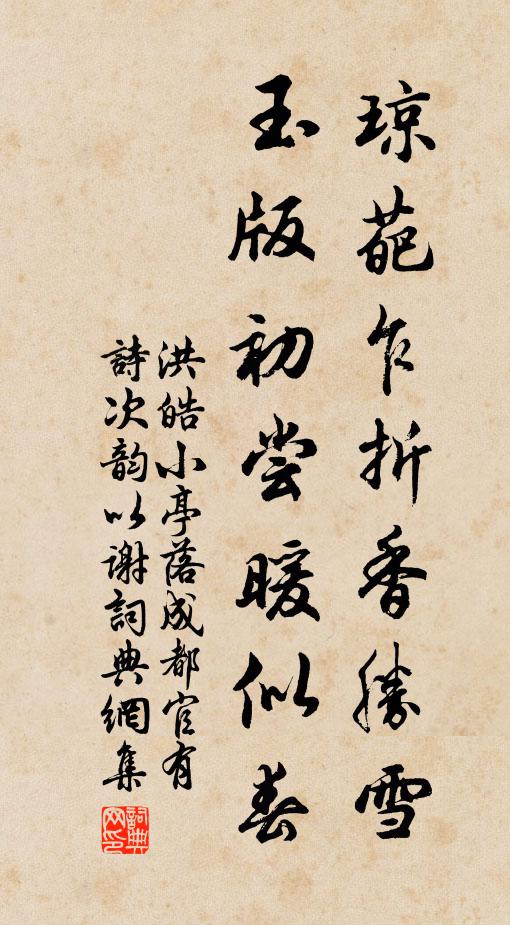 琼葩乍折香勝雪
玉版初尝暖似春
洪皓小亭落成都官有
詩次韵以谢詞典網集
詞典网印